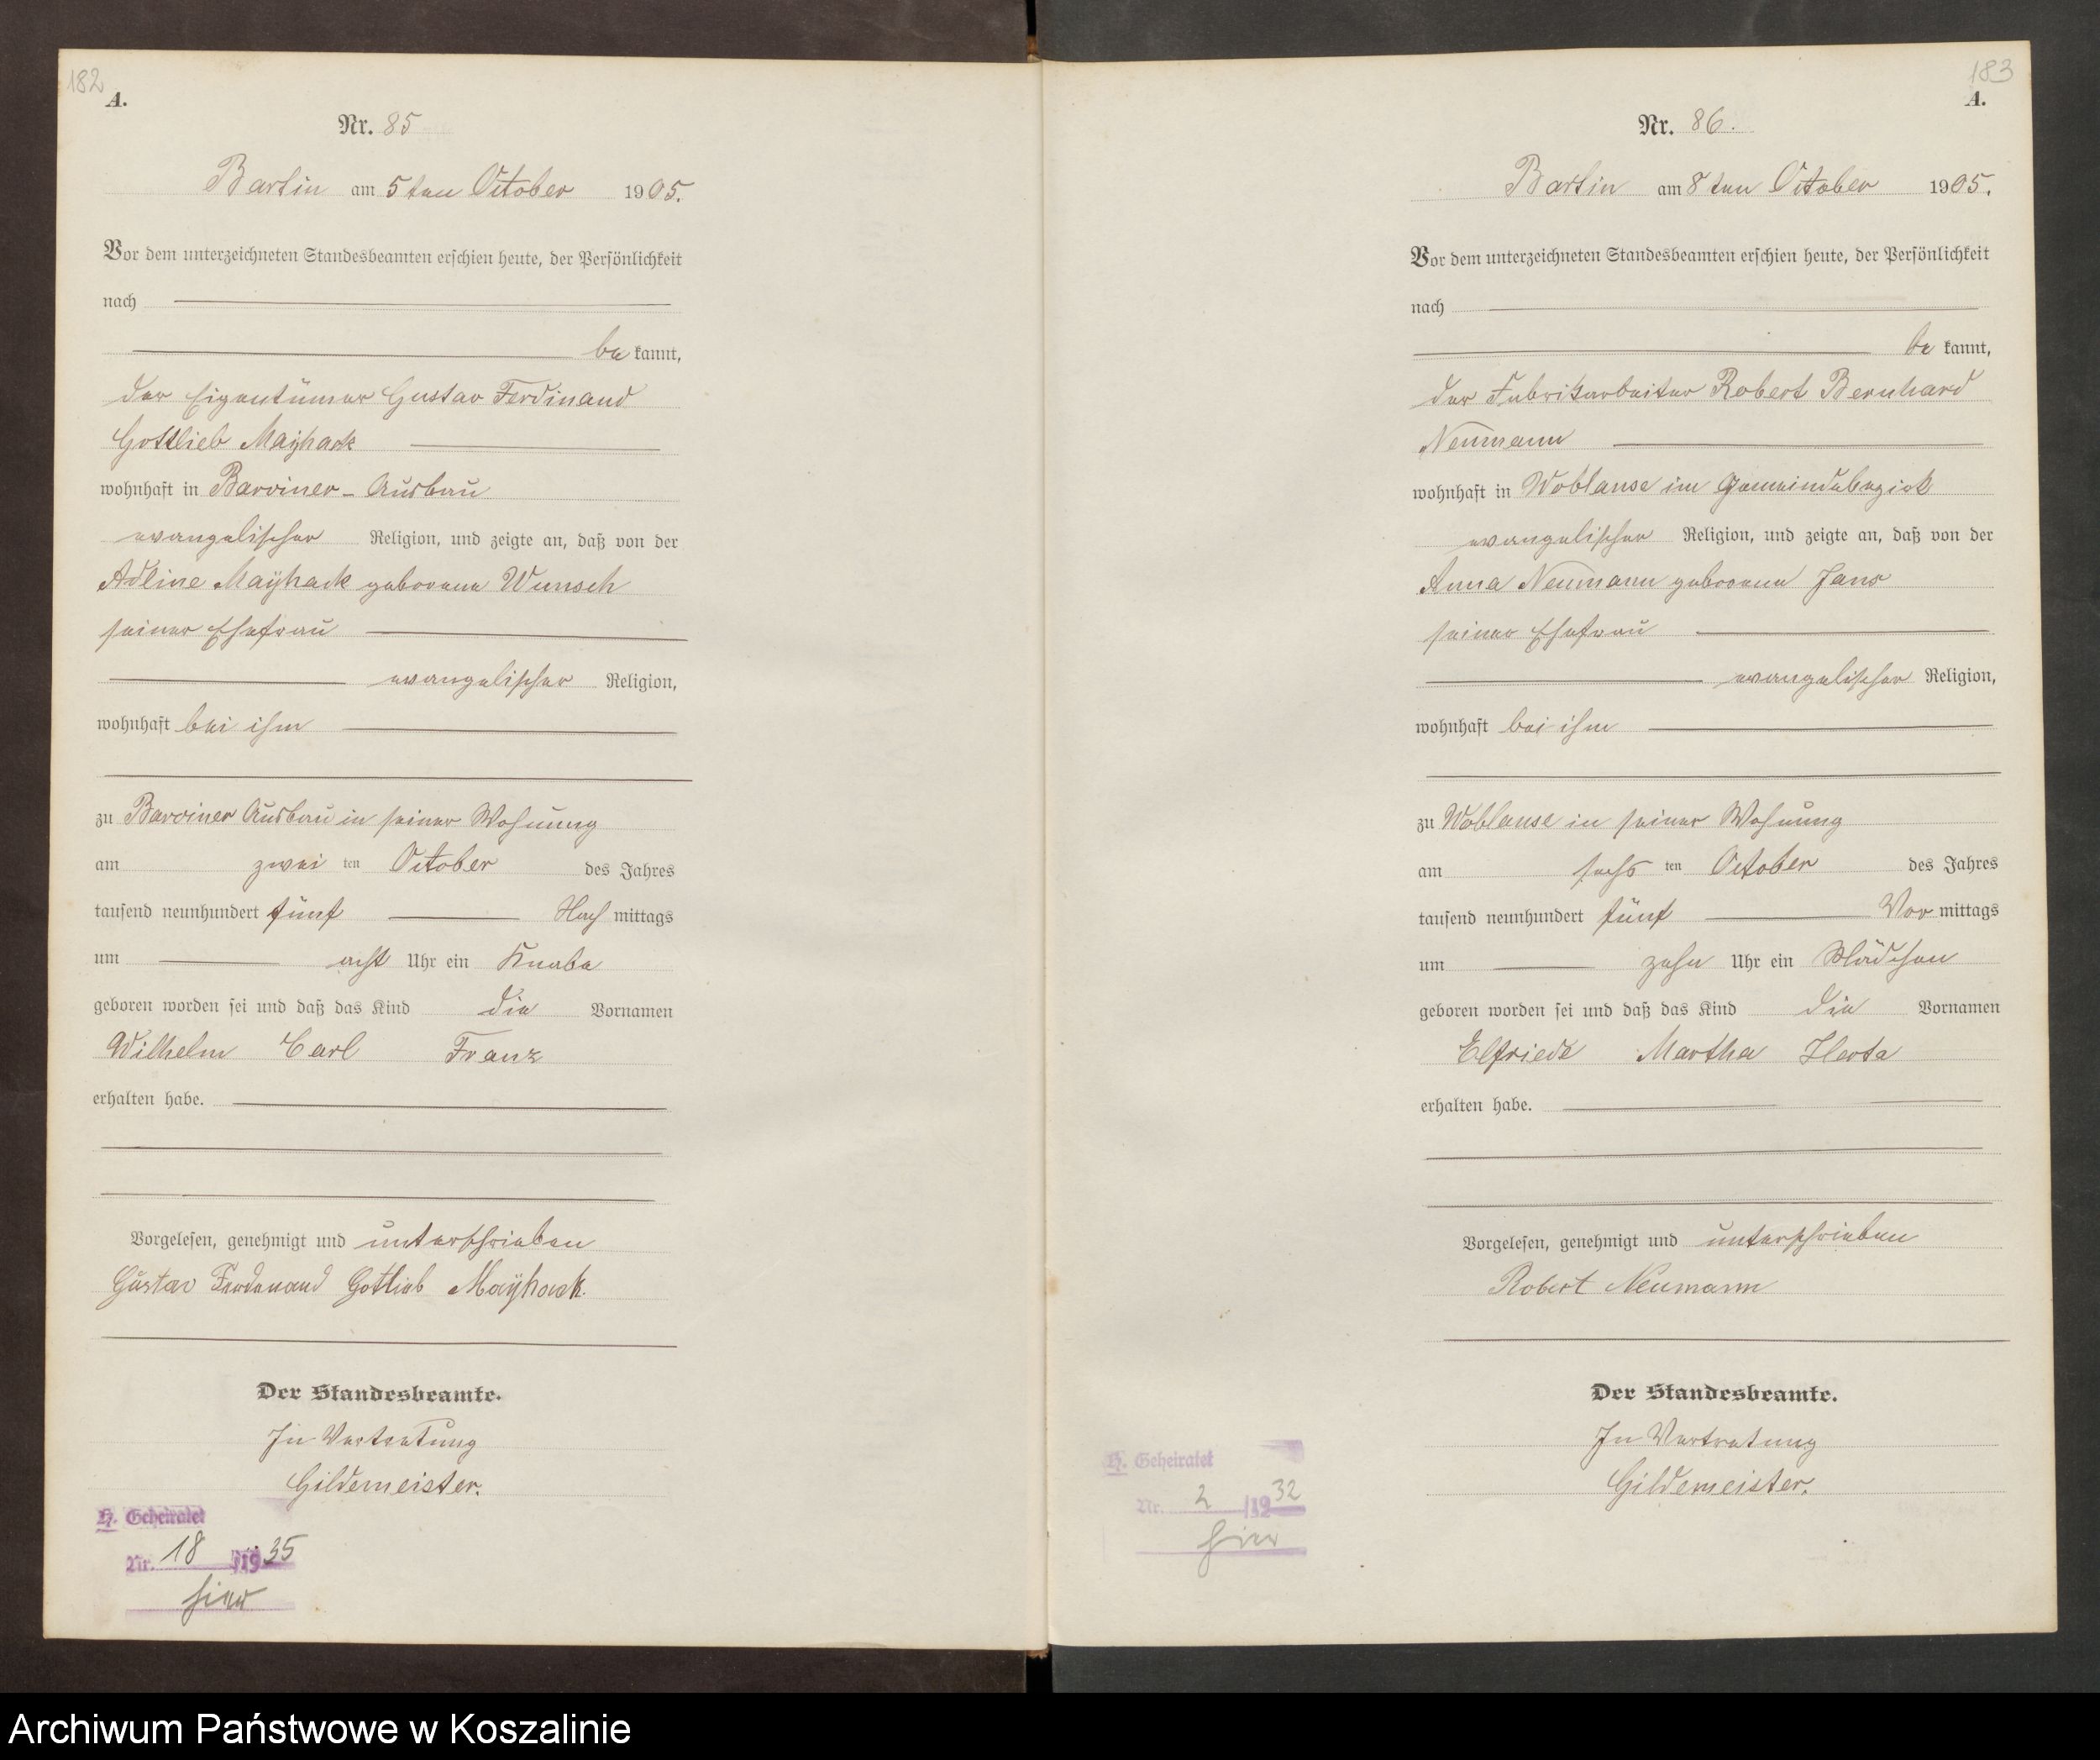 182
A.
Nr. 85
Bartin am 5ten October 1905.
Vor dem unterzeichneten Standesbeamten erschien heute, der Persönlichkeit
nach
be kannt,
der Eigentümer Gustav Ferdinand
Gottlieb Mayhack
wohnhaft in Barviner-Ausbau
evangelischer Religion, und zeigte an, daß von der
Adline Mayhack geborene Wunsch
seiner Ehefrau
evangelischer Religion,
wohnhaft bei ihm
zu Barviner Ausbau in seiner Wohnung
am zwei ten October des Jahres
tausend neunhundert fünf Nach mittags
um acht Uhr ein Knabe
geboren worden sei und daß das Kind die Vornamen
Wilhelm Carl Franz
erhalten habe.
Vorgelesen, genehmigt und unterschrieben
Gustav Ferdenand Gottlieb Mayhack.
Der Standesbeamte.
In Vertretung
Gildemeister.
H. Geheiratet
Nr. 18 /1935
hier
183
A.
Nr. 86.
Bartin am 8ten October 1905.
Vor dem unterzeichneten Standesbeamten erschien heute, der Persönlichkeit
nach
be kannt,
der Fabrikarbeiter Robert Bernhard
Neumann
wohnhaft in Woblanse im Gemeindebezirk
evangelischer Religion, und zeigte an, daß von der
Anna Neumann geborene
seiner Ehefrau
evangelischer Religion,
wohnhaft bei ihm
zu Woblanse in seiner Wohnung
am sechs ten October des Jahres
tausend neunhundert fünf Vor mittags
um zehn Uhr ein Mädchen
geboren worden sei und daß das Kind die Vornamen
Elfriede Martha Herta
erhalten habe.
Vorgelesen, genehmigt und unterschrieben
Robert Neumann
Der Standesbeamte.
In Vertretung
Gildemeister.
H. Geheiratet
Nr. 2 /1932
hier
Archiwum Państwowe w Koszalinie